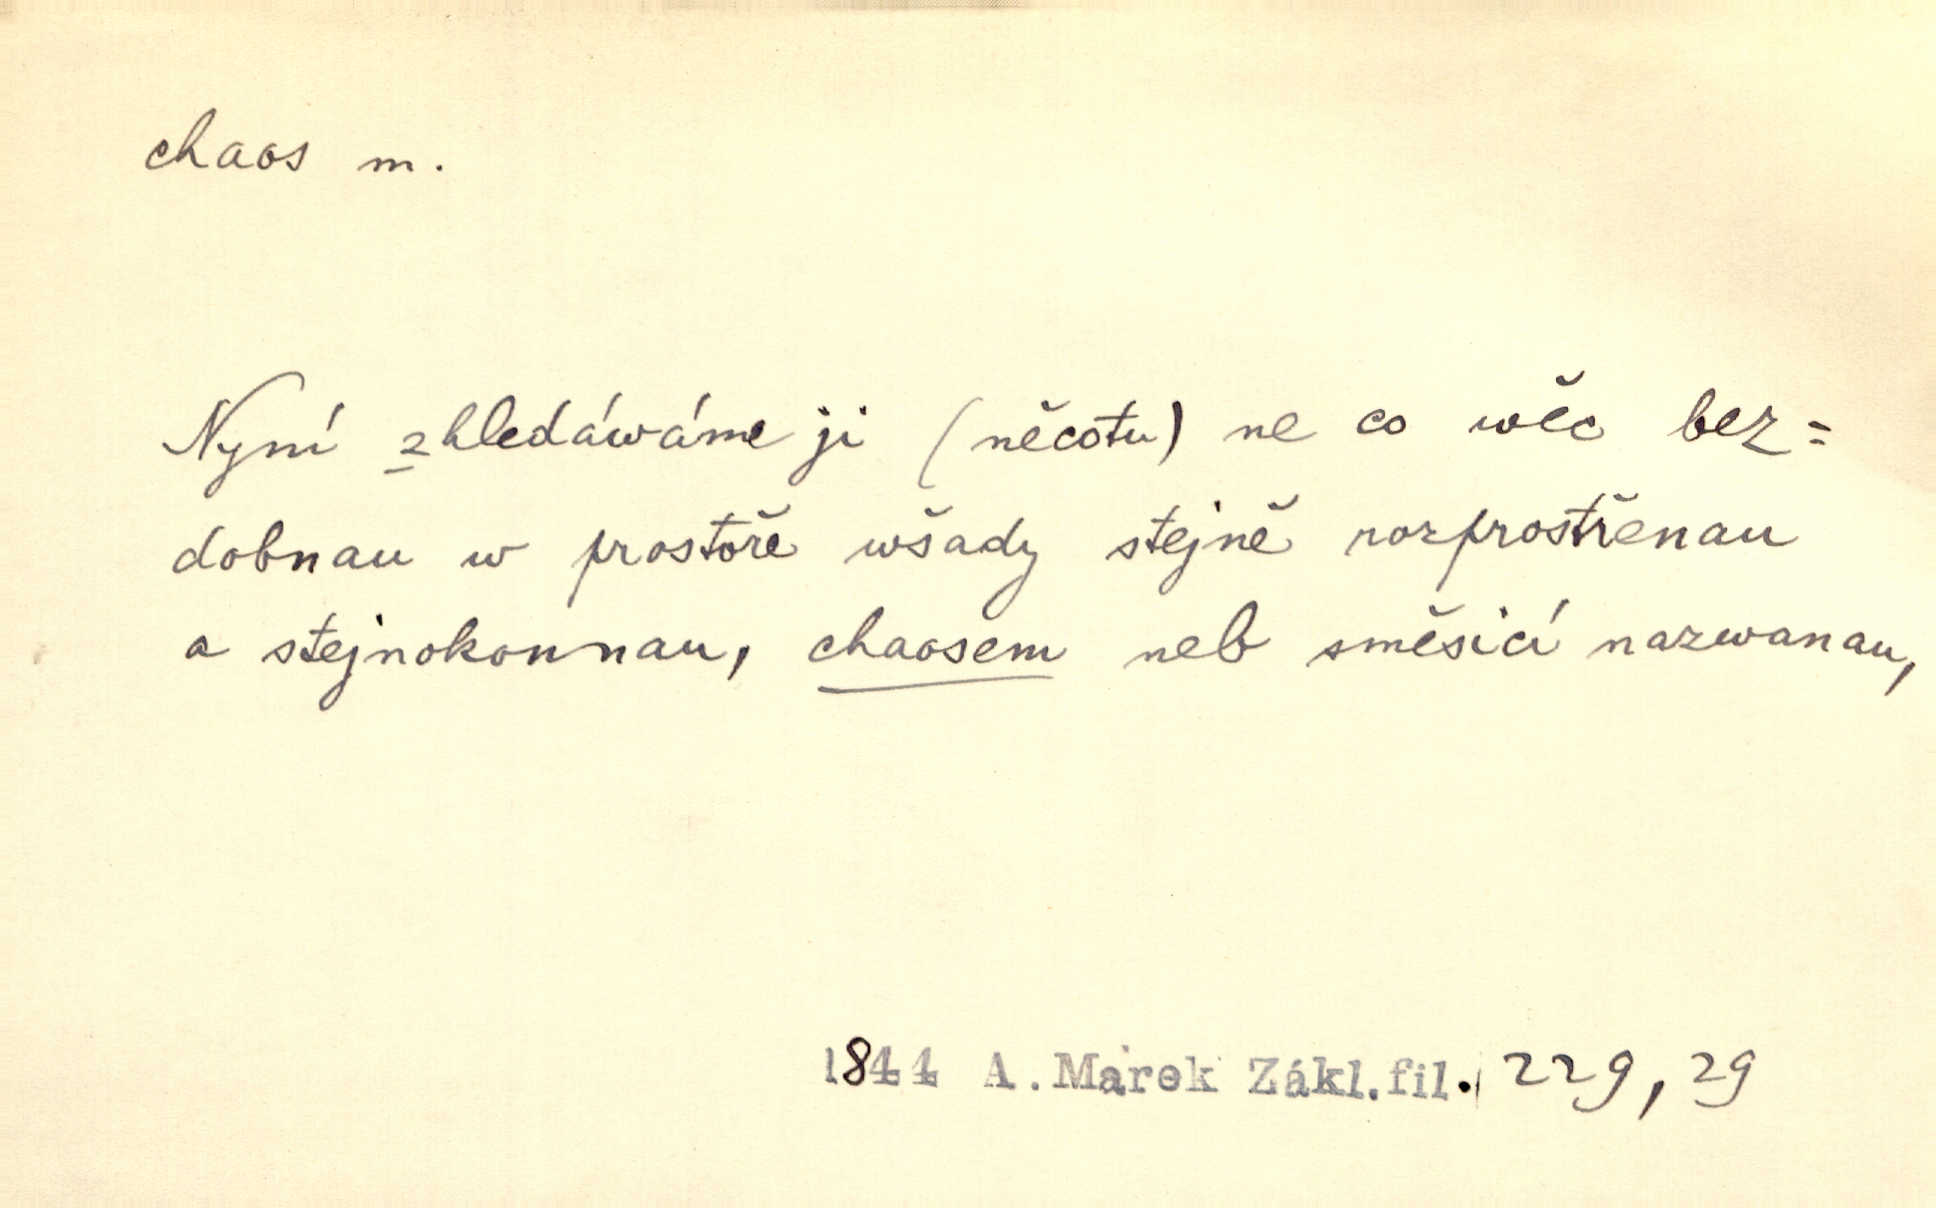 chaos m.
Nyní zhledáwáme ji (něcotu) ne co wěc bez=
dobnau w prostoře wšady stejně rozprostřenau
a stejnokonnau, chaosem neb směsicí nazwanau,
1844 A. Marek Zákl. fil. 229, 29